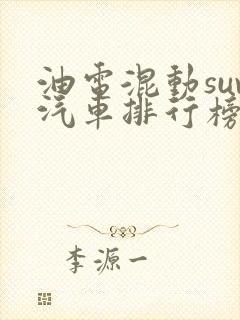 油電混動suv
汽車排行榜
李源一